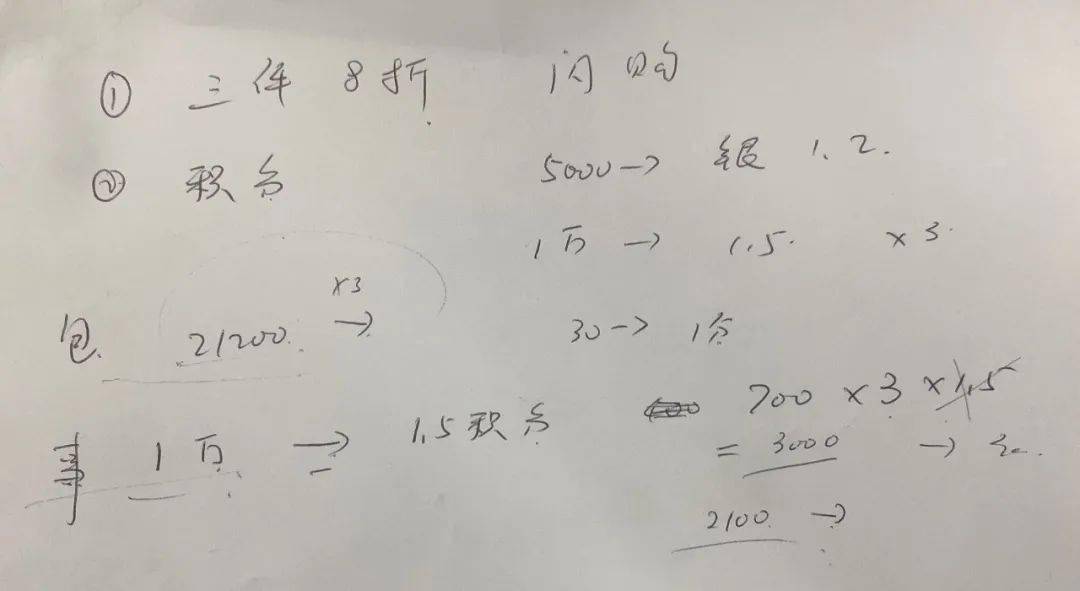 ① 三件 8折 闪购
② 积分 5000→ 银 1.2.
1万 → 1.5. ×3.
包 21200. ×3 →
30→ 1分
1万 → 1.5积分
700 ×3 ×1.5
= 3000 →
2100 →